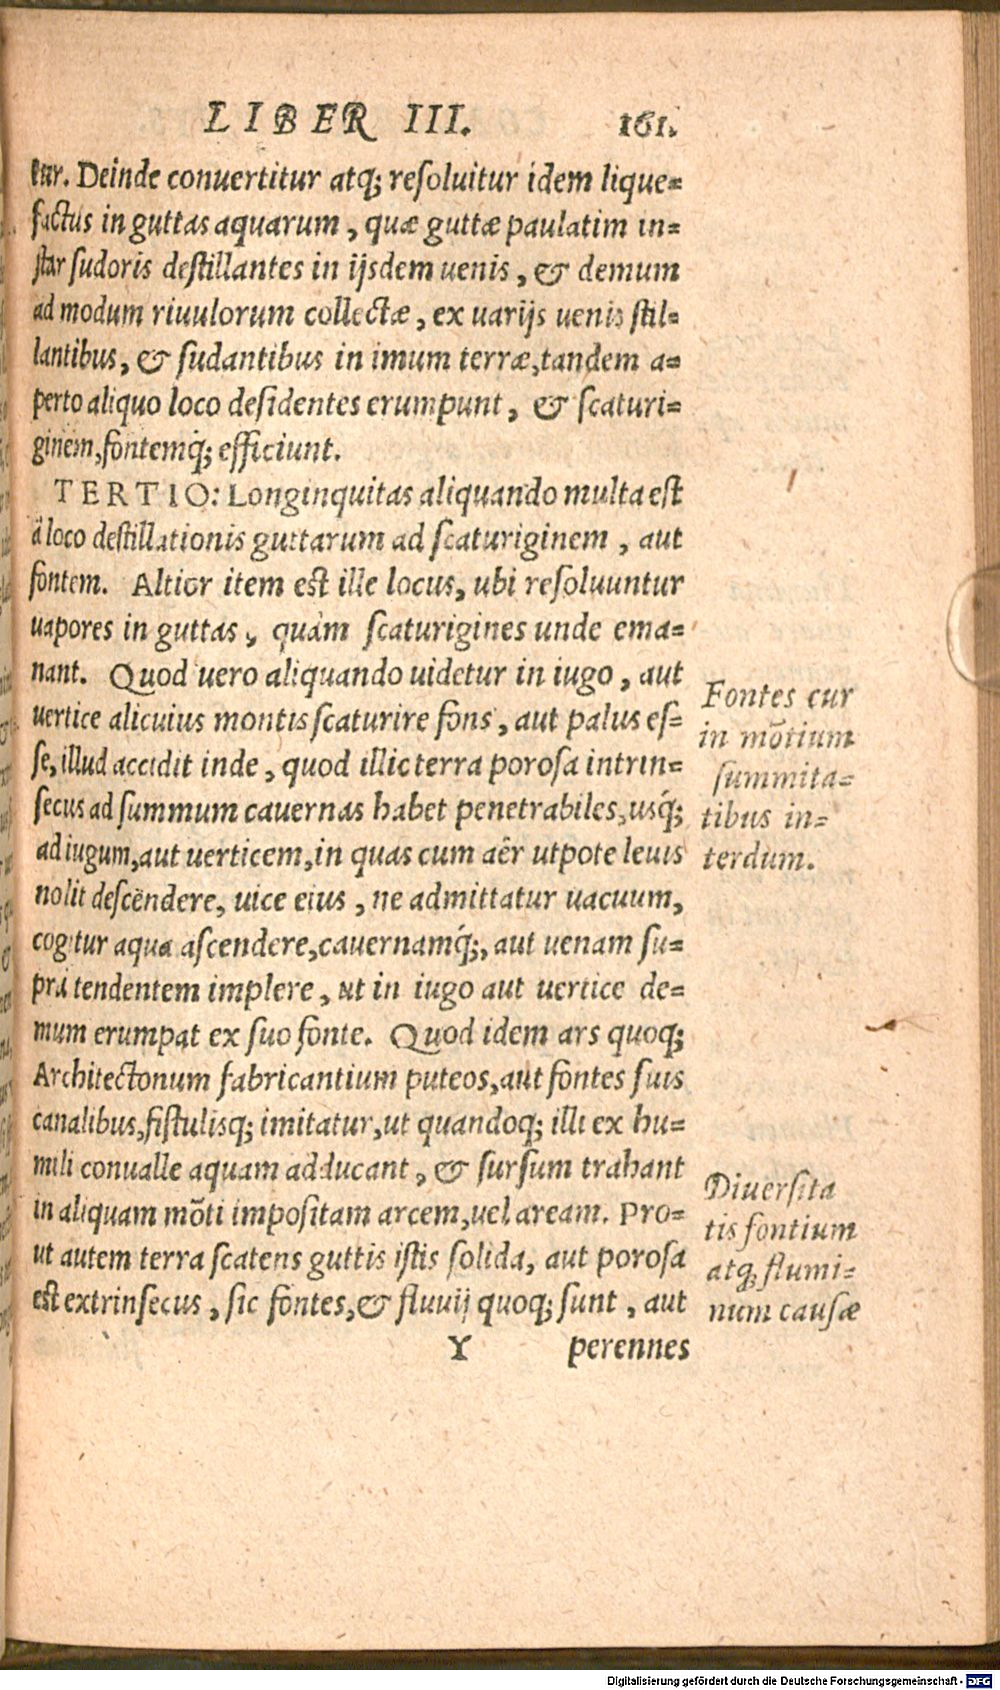 LIBER III. 161.
tur. Deinde conuertitur atq; resoluitur idem lique=
factus in guttas aquarum, quæ guttæ paulatim in=
star sudoris destillantes in ijsdem uenis, & demum
ad modum riuulorum collectæ, ex uarijs uenis stil=
lantibus, & sudantibus in imum terræ, tandem a=
perto aliquo loco desidentes erumpunt, & scaturi=
ginem, fontemq́; efficiunt.
TERTIO: Longinquitas aliquando multa est
à loco destillationis guttarum ad scaturiginem, aut
fontem. Altior item est ille locus, ubi resoluuntur
uapores in guttas, quàm scaturigines unde ema=
nant. Quod uero aliquando uidetur in iugo, aut
uertice alicuius montis scaturire fons, aut palus es=
se, illud accidit inde, quod illic terra porosa intrin=
secus ad summum cauernas habet penetrabiles, usq́;
ad iugum, aut uerticem, in quas cum aër utpote leuis
nolit descẽdere, uice eius, ne admittatur uacuum,
cogitur aqua ascendere, cauernamq́;, aut uenam su=
prà tendentem implere, ut in iugo aut uertice de=
mum erumpat ex suo fonte. Quod idem ars quoq;
Architectonum fabricantium puteos, aut fontes suis
canalibus, fistulisq; imitatur, ut quandoq; illi ex hu=
mili conualle aquam adducant, & sursum trahant
in aliquam mõti impositam arcem, uel aream. Pro=
ut autem terra scatens guttis istis solida, aut porosa
est extrinsecus, sic fontes, & fluuij quoq; sunt, aut
Y perennes
Fontes cur
in mõtium
summita=
tibus in=
terdum.
Diuersita
tis fontium
atq; flumi=
num causæ
Digitalisierung gefördert durch die Deutsche Forschungsgemeinschaft - DFG